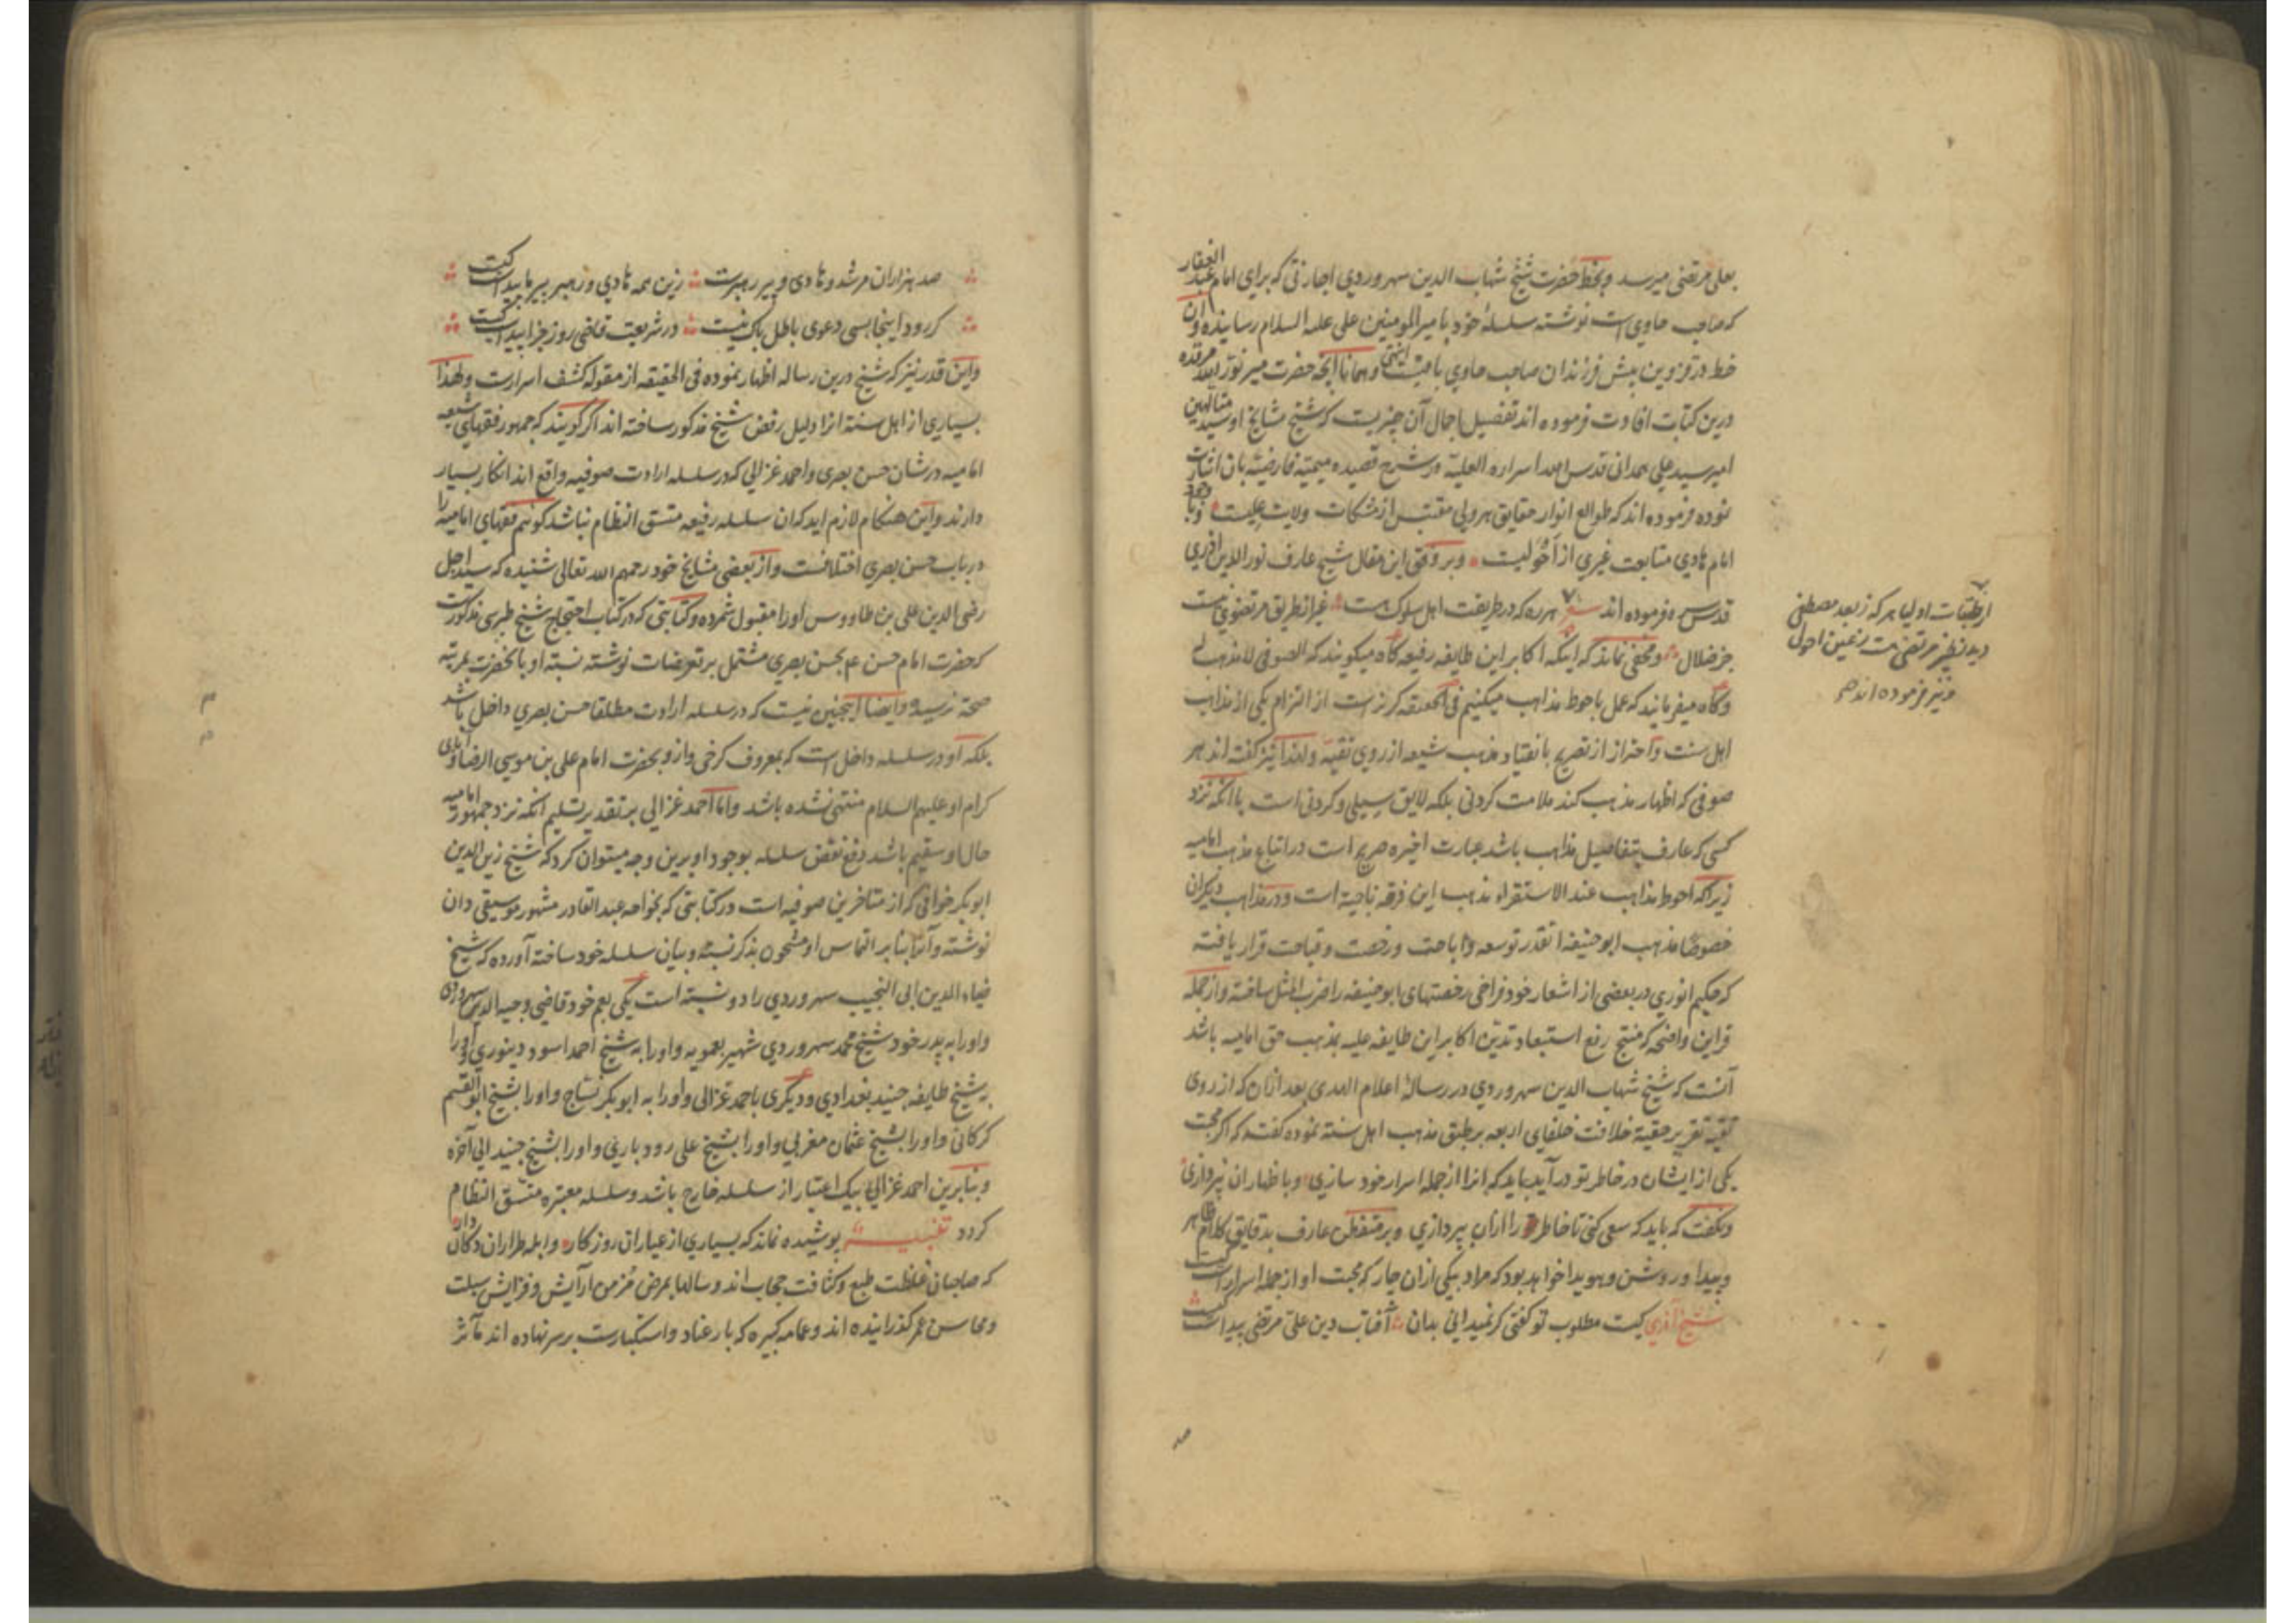 بعلی مرتضی میرسد وبخط حضرت شیخ شهاب الدین سهروردی اجازتی که برای امام عبد الغفار
که صاحب حاوی است نوشته سلسلهٔ خود با میر المومنین علی علیه السلام رسانیده و آن
خط در قزوین پیش فرزندان صاحب حاوی باقیست انتهی وهمانا آنچه حضرت میر نور الله مرقده
درین کتابت افادت فرموده اند تفصیل اجمال آن چیزیست که شیخ مشایخ او سید متالهین
امیر سید علی همدانی قدس الله اسراره العلیة در شرح قصیده میمیة فارضیة بان اشارت
نموده فرموده اند که طوالع انوار حقایق هر ولی مقتبس از مشکات ولایت علیست و با وجود
امام هادی متابعت غیری از احولیست وبر وفق این مقال شیخ عارف نور الدین آذری
قدس سره فرموده اند هر ره که در طریقت اهل سلوک هست غیر از طریق مرتضوی هست
جز ضلال ومخفی نماند که اینکه اکابر این طایفه رفیعه گاه میگویند که الصوفی لا مذهب له
وگاه میفرمایند که عمل باحوط مذاهب میکنیم فی الحقیقه گریز است از التزام یکی از مذاهب
اهل سنت واحتراز از تصریح بانقیاد مذهب شیعه از روی تقیه ولهذا نیز گفته اند هر
صوفی که اظهار مذهب کند ملامت کردنی بلکه لایق سیلی و گردنی است با آنکه نزد
کسی که عارف بتفاصیل مذاهب باشد عبارت اخیره صریح است در اتباع مذهب امامیه
زیراکه احوط مذاهب عند الاستقراء مذهب این فرقه ناجیه است ودر مذاهب دیگران
خصوصا مذهب ابو حنیفه انقدر توسعه واباحت ورخصت وقباحت قرار یافته
که حکیم انوری در بعضی از اشعار خود فراخی رخصتهای ابو حنیفه را ضرب المثل ساخته واز جمله
قراین واضحه که منتج رفع استبعاد تدین اکابر این طایفه علیه بمذهب حق امامیه باشد
آنست که شیخ شهاب الدین سهروردی در رسالهٔ اعلام الهدی بعد ازان که از روی
تقیه تقریر حقیة خلافت خلفای اربعه بر طبق مذهب اهل سنته نموده گفته که اگر محبت
یکی از ایشان در خاطر تو در آید باید که انرا از جمله اسرار خود سازی وباظهار ان نپردازی
ونگفت که باید که سعی کنی تا خاطر را ازان بپردازی وبر متفطن عارف بدقایق کلام ظاهر
وپیدا وروشن وهویدا خواهد بود که مراد بیکی ازان چار که محبت او از جمله اسرار است کیست
شیخ آذری کیست مطلوب تو گفتی گر نمیدانی بدان آفتاب دین علی مرتضی پیداست کیست
از طبقات اولیا هر که ز بعد مصطفی
دید نظیر مرتضی هست ز عین احول
و نیز فرموده اند
صد
صد هزاران مرشد وهادی وپیر رهبرست زین همه هادی ورهبر پیر ما پیداست کیست
کر رود اینجا بسی دعوی باطل باک نیست در شریعت قاضی روز جزا پیداست کیست
واین قدر نیز که شیخ درین رساله اظهار نموده فی الحقیقه از مقوله کشف اسرارست ولهذا
بسیاری از اهل سنته انرا دلیل رفض شیخ مذکور ساخته اند اگر گویند که جمهور فقهای شیعه
امامیه در شان حسن بصری واحمد غزالی که در سلسله ارادت صوفیه واقع اند انکار بسیار
دارند واین هنگام لازم آید که ان سلسله رفیعه متسق النظام نباشد گوئیم فقهای امامیه را
در باب حسن بصری اختلافست واز بعضی مشایخ خود رحمهم الله تعالی شنیده که سید اجل
رضی الدین علی بن طاووس اورا مقبول شمرده وکتابتی که در کتاب احتجاج شیخ طبرسی مذکورست
که حضرت امام حسن ع بحسن بصری مشتمل بر تعریضات نوشته نسبته او بانحضرت بمرتبه
صحة نرسیده وایضا اینچنین نیست که در سلسله ارادت مطلقا حسن بصری داخل باشد
بلکه او در سلسله داخل است که بمعروف کرخی وازو بحضرت امام علی بن موسی الرضا وآبای
کرام او علیهم السلام منتهی نشده باشد واما احمد غزالی بر تقدیر تسلیم انکه نزد جمهور امامیه
حال او سقیم باشد دفع نقض سلسله بوجود او برین وجه میتوان کرد که شیخ زین الدین
ابو بکر خوافی که از متاخرین صوفیه است در کتابتی که بخواجه عبد القادر مشهور موسیقی دان
نوشته وآنرا بنا بر التماس او مشحون بذکر نسبه وبیان سلسله خود ساخته آورده که شیخ
ضیاء الدین ابی النجیب سهروردی را دو نسبته است یکی بعم خود قاضی وجیه الدین سهروردی
واورا به پدر خود شیخ محمد سهروردی شهیر بعمویه واورا به شیخ احمد اسود دینوری واورا
به شیخ طایفه جنید بغدادی ودیگری باحمد غزالی واورا به ابو بکر نساج واورا بشیخ ابو القسم
کرکانی واورا بشیخ عثمان مغربی واورا بشیخ علی رودباری واورا بشیخ جنید الی آخره
وبنابرین احمد غزالی بیک اعتبار از سلسله خارج باشد وسلسله معتبره متسق النظام
کردد تنبیه پوشیده نماند که بسیاری از عیاران روزکار وابله طراران دکان دار
که صاحبان غلظت طبع وکثافت حجاب اند وسالها بمرض مزمن آرایش وفزایش سبلت
ومحاسن عمر گذرانیده اند وعمامه کبیره که بار عناد واستکبارست بر سر نهاده اند مآثر